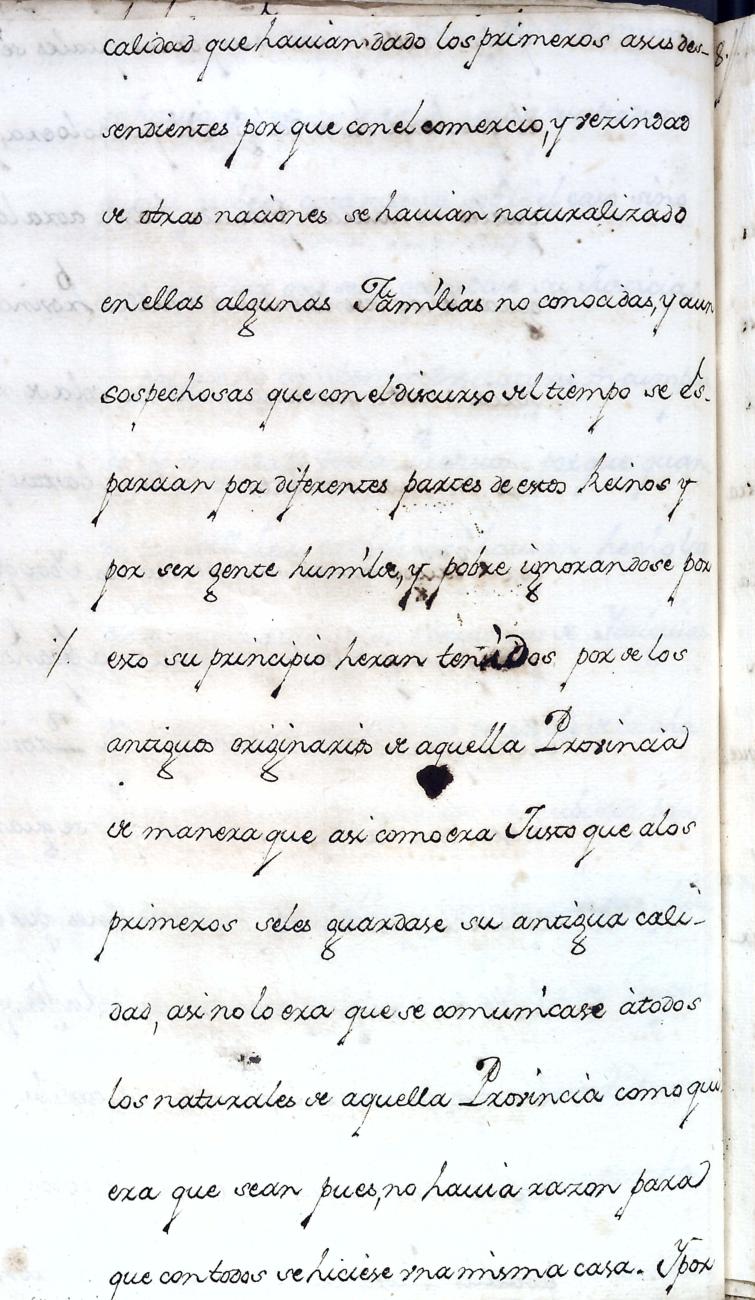 calidad que havian dado los primeros asus des-
sendientes por que con el comercio, y vezindad
de otras naciones se havian naturalizado
en ellas algunas Familias no conocidas, y aun
sospechosas que con el discurso del tiempo se es-
parcian por diferentes partes de estos Reinos y
por ser gente humilde, y pobre ignorandose por
esto su principio heran tenidos por de los
antiguos originarios de aquella Provincia
de manera que asi como era Justo que a los
primeros seles guardase su antigua cali-
dad, asi no lo era que se comunicase à todos
los naturales de aquella Provincia como qui
era que sean pues, no havia razon para
que con todos se hiciese vna misma casa. Y por